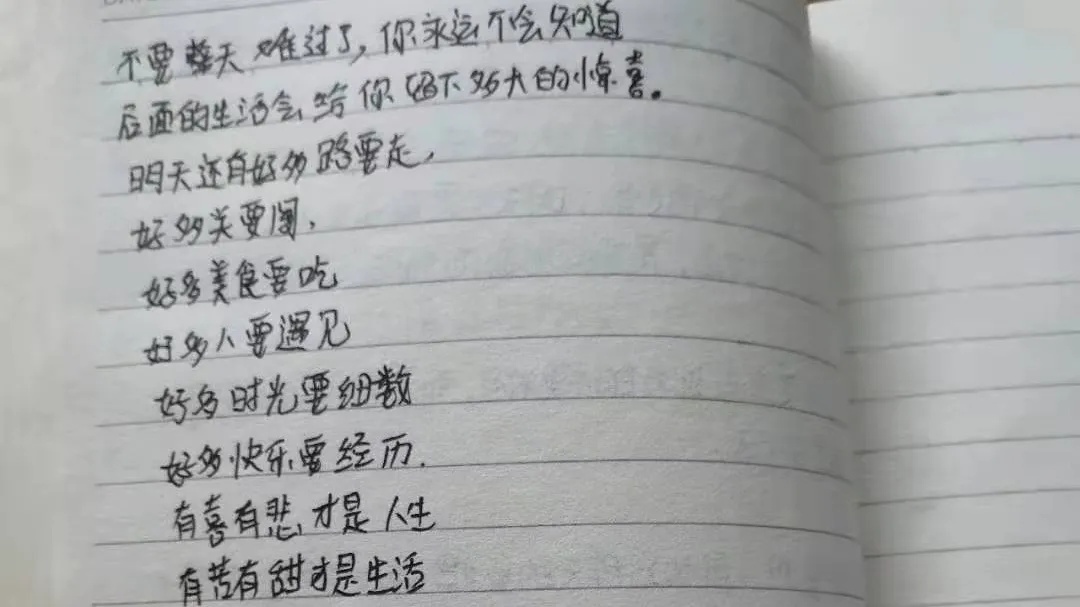 不要整天难过了,你永远不会知道
后面的生活会给你留下多大的惊喜。
明天还有好多路要走,
好多关要闯,
好多美食要吃
好多人要遇见
好多时光要细数
好多快乐要经历.
有喜有悲才是人生
有苦有甜才是生活